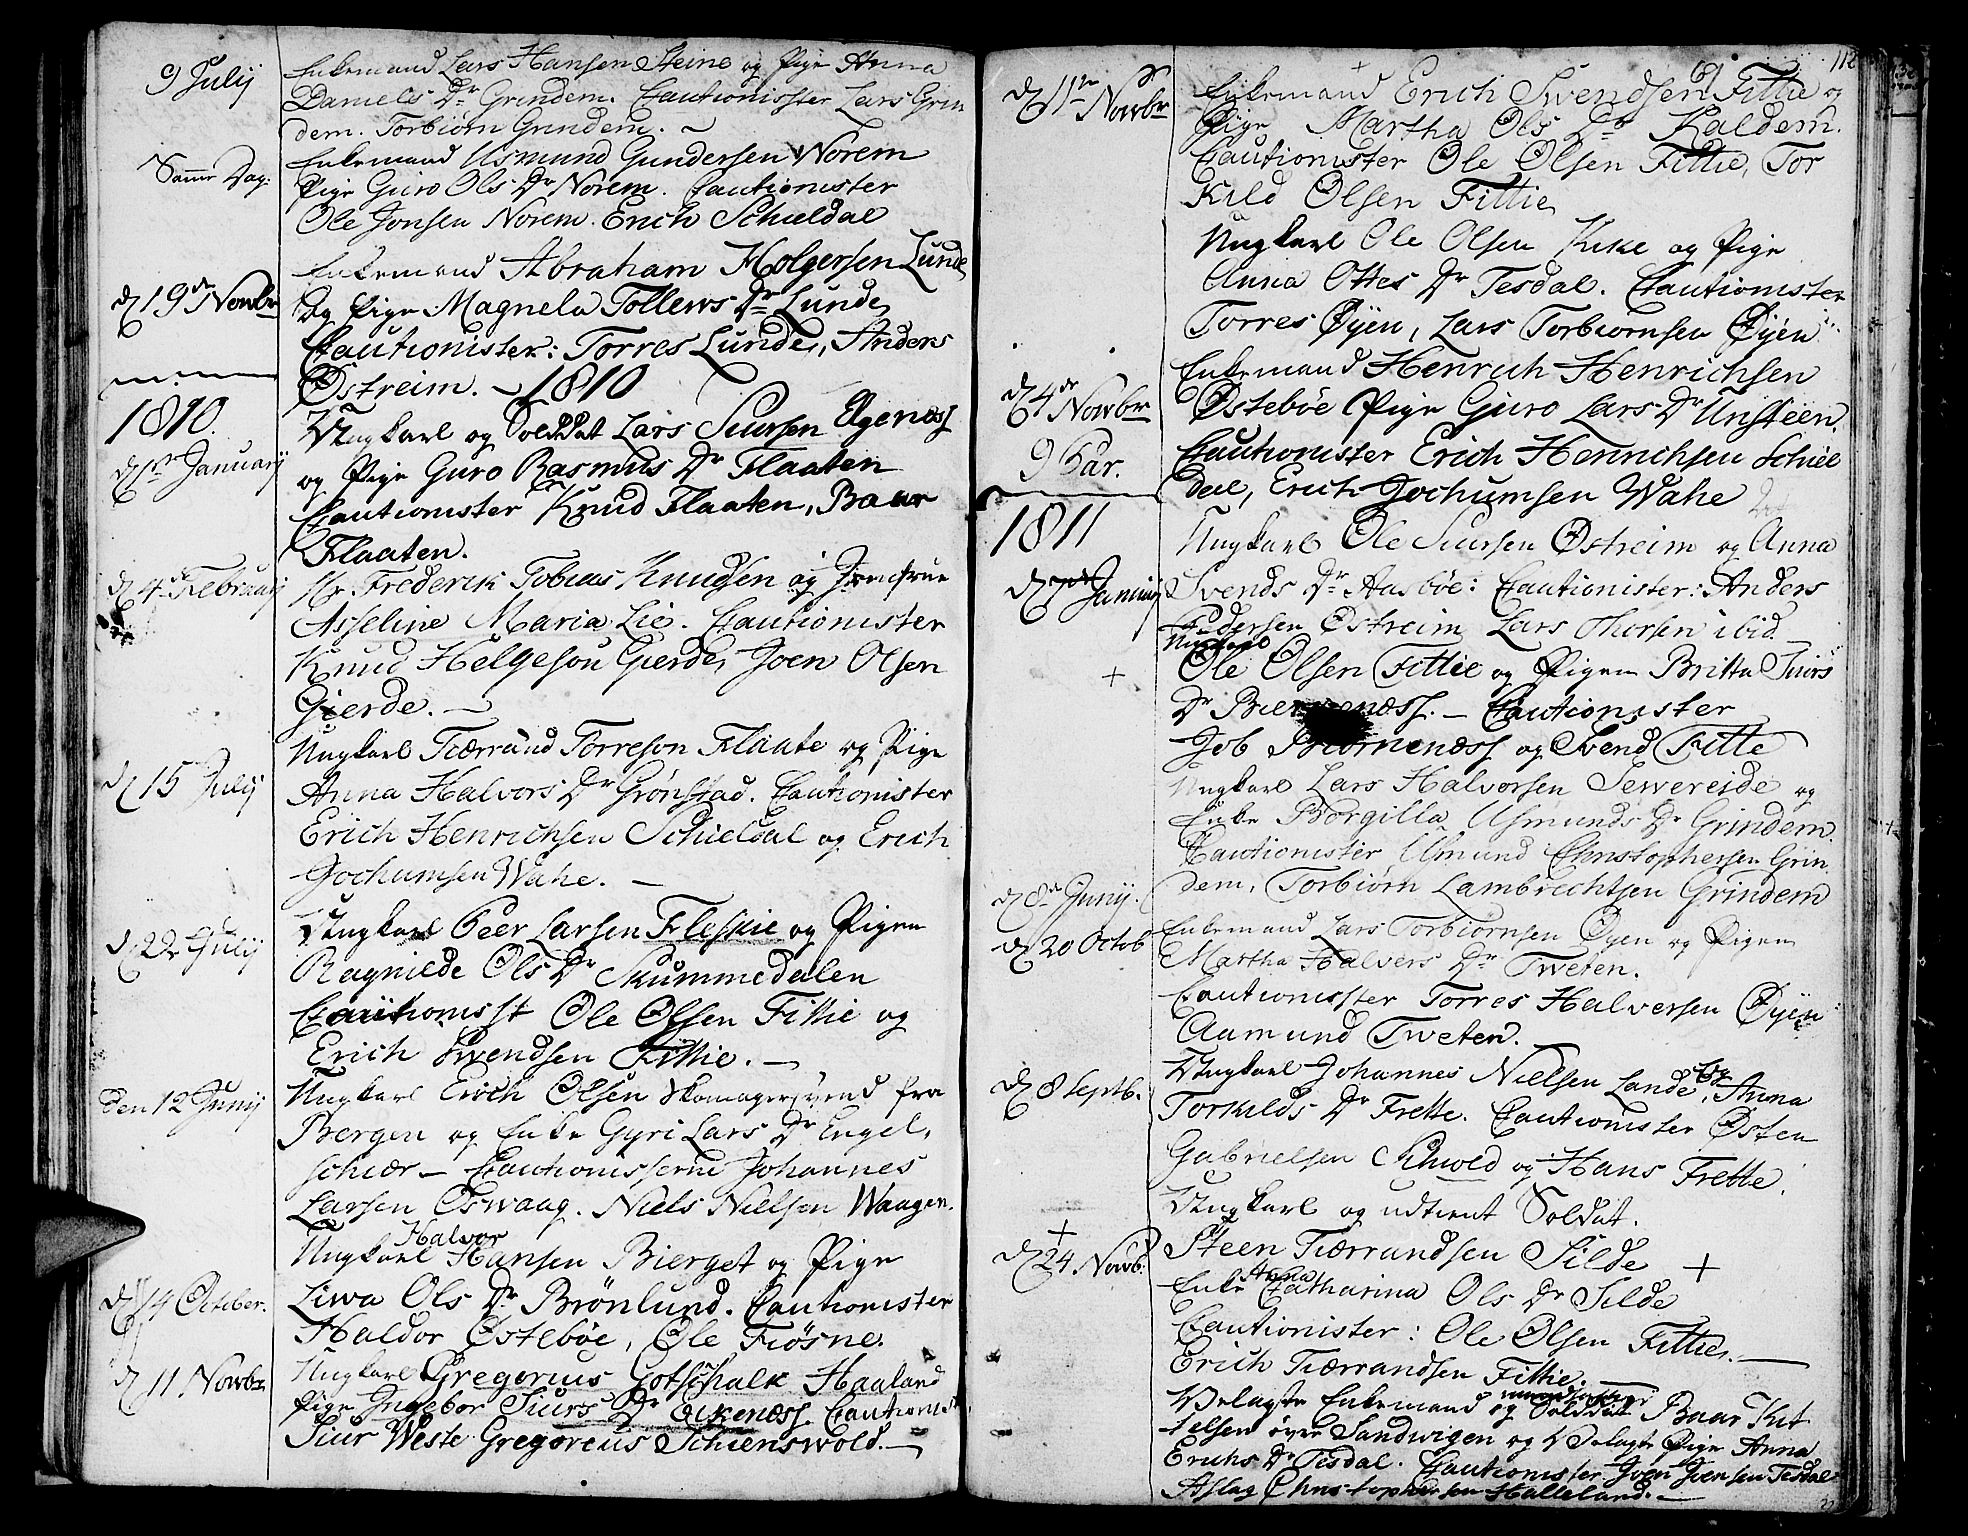 9 Julij
Enkemand Lars Hansen Steine og Pige Anna
Daniels Dr Grindem. Cautionister Lars Grin
dem. Torbiørn Grindem.
Samme Dag.
Enkemand Asmund Gundersen Norem
Pige Guro Ols Dr Norem. Cautionister
Ole Jonsen Norem. Erich Schieldal
d 19de Novbr
Enkemand Abraham Holgersen Lunde
og Pige Magnela Tollews Dr Lunde
Cautionister: Torres Lunde, Anders
Østreim. 1810
1810.
d 1ste Januarij
Ungkarl og Solddat Lars Siursen Elgenæss
og Pige Guro Rasmus Dr Flaaten
Cautionister Knud Flaaten, Baar
Flaaten.
d 4de Februarij
Hr Frederik Tobias Knudsen og Jomfrue
Asseline Maria Lie. Cautionister
Knud Helgeson Gierde, Joen Olsen
Gierde.
d 15 Julij
Ungkarl Tiærrand Torreson Flaate og Pige
Anna Halvors Dr Grønstad. Cautionister
Erich Henrichsen Schieldal og Erich
Jochumsen Wahe.
d 22 Julij
Ungkarl Peer Larsen Fleskie og Pigen
Ragnilde Ols Dr Skummedalen
Cautionist Ole Olsen Fittie og
Erich Swendsen Fittie.
den 12 Junij
Ungkarl Erich Olsen Skomagersvend fra
Bergen og Enke Gyri Lars Dr Engel,
schiær - Cautionisterne Johannes
Larsen Oswaag. Niels Nielsen Waagen.
Halvor
Ungkarl Hansen Bierget og Pige
d 14 October.
Liwa Ols Dr Brønlund. Cautionister
Haldor Østebøe, Ole Fiøsne.
d 11 Novbr
Ungkarl Gregorius Gotschalk Haaland
Pige Ingebor Siurs Dr Eikenæss. Cautionist
Siur Weste Gregoreius Schienswold.
112
d 11te Novbr
Enkemand Erich Swendsen Fittie og
Pige Martha Ols Dr Kaldem.
Cautionister Ole Olsen Fittie, Tor
kild Olsen Fittie
Ungkarl Ole Olsen Kike og Pige
Anna Ottes Dr Tesdal. Cautionister
Torres Øyen, Lars Torbiørnsen Øyen
d 4de Novbr
Enkemand Henrich Henrichsen
Østebøe Pige Guro Lars Dr Unsteen.
9 Par.
Cautionister Erich Henrichsen Schiel
dal, Erich Jochumsen Wahe
1811
Ungkarl Ole Siursen Østreim og Anna
d Januij
Svends Dr Aasbøe: Cautionister: Anders
Pedersen Østreim Lars Thorsen ibid
Ungkarl
Ole Olsen Fittie og Pigen Britta Siurs
+
Dr Biernenæss. - Cautionister
Job Biørnenæss og Svend Fitte
Ungkarl Lars Halvorsen Sewereide og
Enke Borgilla Asmunds Dr Grindem.
Cautionister Asmund Christophersen Grin
d 8de Junij.
dem, Torbiørn Lambrechtsen Grindem
d 20 Octob
Enkemand Lars Torbiørnsen Øyen og Pigen
Martha Halvers Dr Tweten.
Cautionister Torres Halversen Øyen
Aamund Tweten.
d 8 Septb.
Ungkarl Johannes Nielsen Lande, og Anna
Torkilds Dr Frette. Cautionister Østen
Gabrielsen og Hans Frette.
Ungkarl og udtient Soldat.
+
d 24 Novb.
Steen Tiærrandsen Silde +
Anna
Enke Catharina Ols Dr Silde
Cautionister: Ole Olsen Fittie.
Erich Tiærrandsen Fittie.
Velagte Enkemand og Solddat Baar Knt
telsen øvre Sandwigen og Velagte Pige Anna
Erichs Dr Tesdal. Cautionister Joen Joensen Tesdal
Aslag Christophersen Halleland.